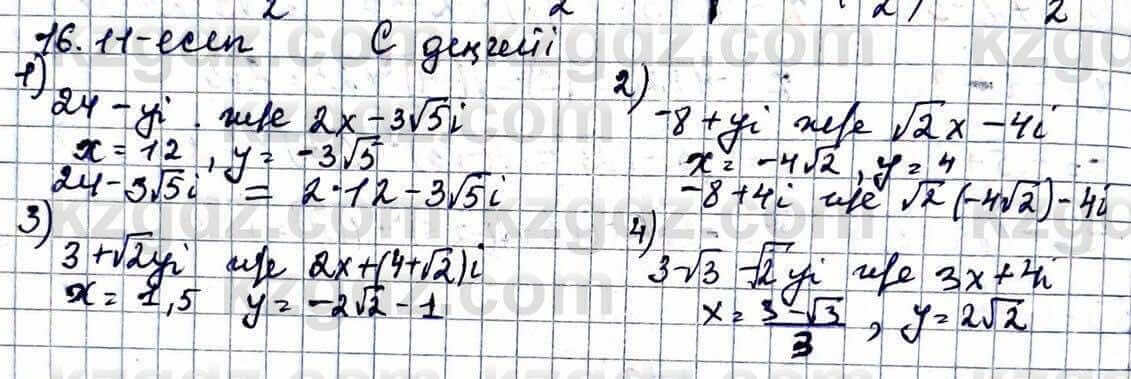 16.11-есеп С деңгейі
1)
24 - yi және 2x - 3√5i
x = 12, y = -3√5
24 - 3√5i = 2·12 - 3√5i
2)
-8 + yi және √2x - 4i
x = -4√2, y = 4
-8 + 4i және √2(-4√2) - 4i
3)
3 + √2yi және 2x + (4+√2)i
x = 1,5 y = -2√2 - 1
4)
3 - √3 - √2yi және 3x + 4i
x = (3 - √3)/3, y = 2√2